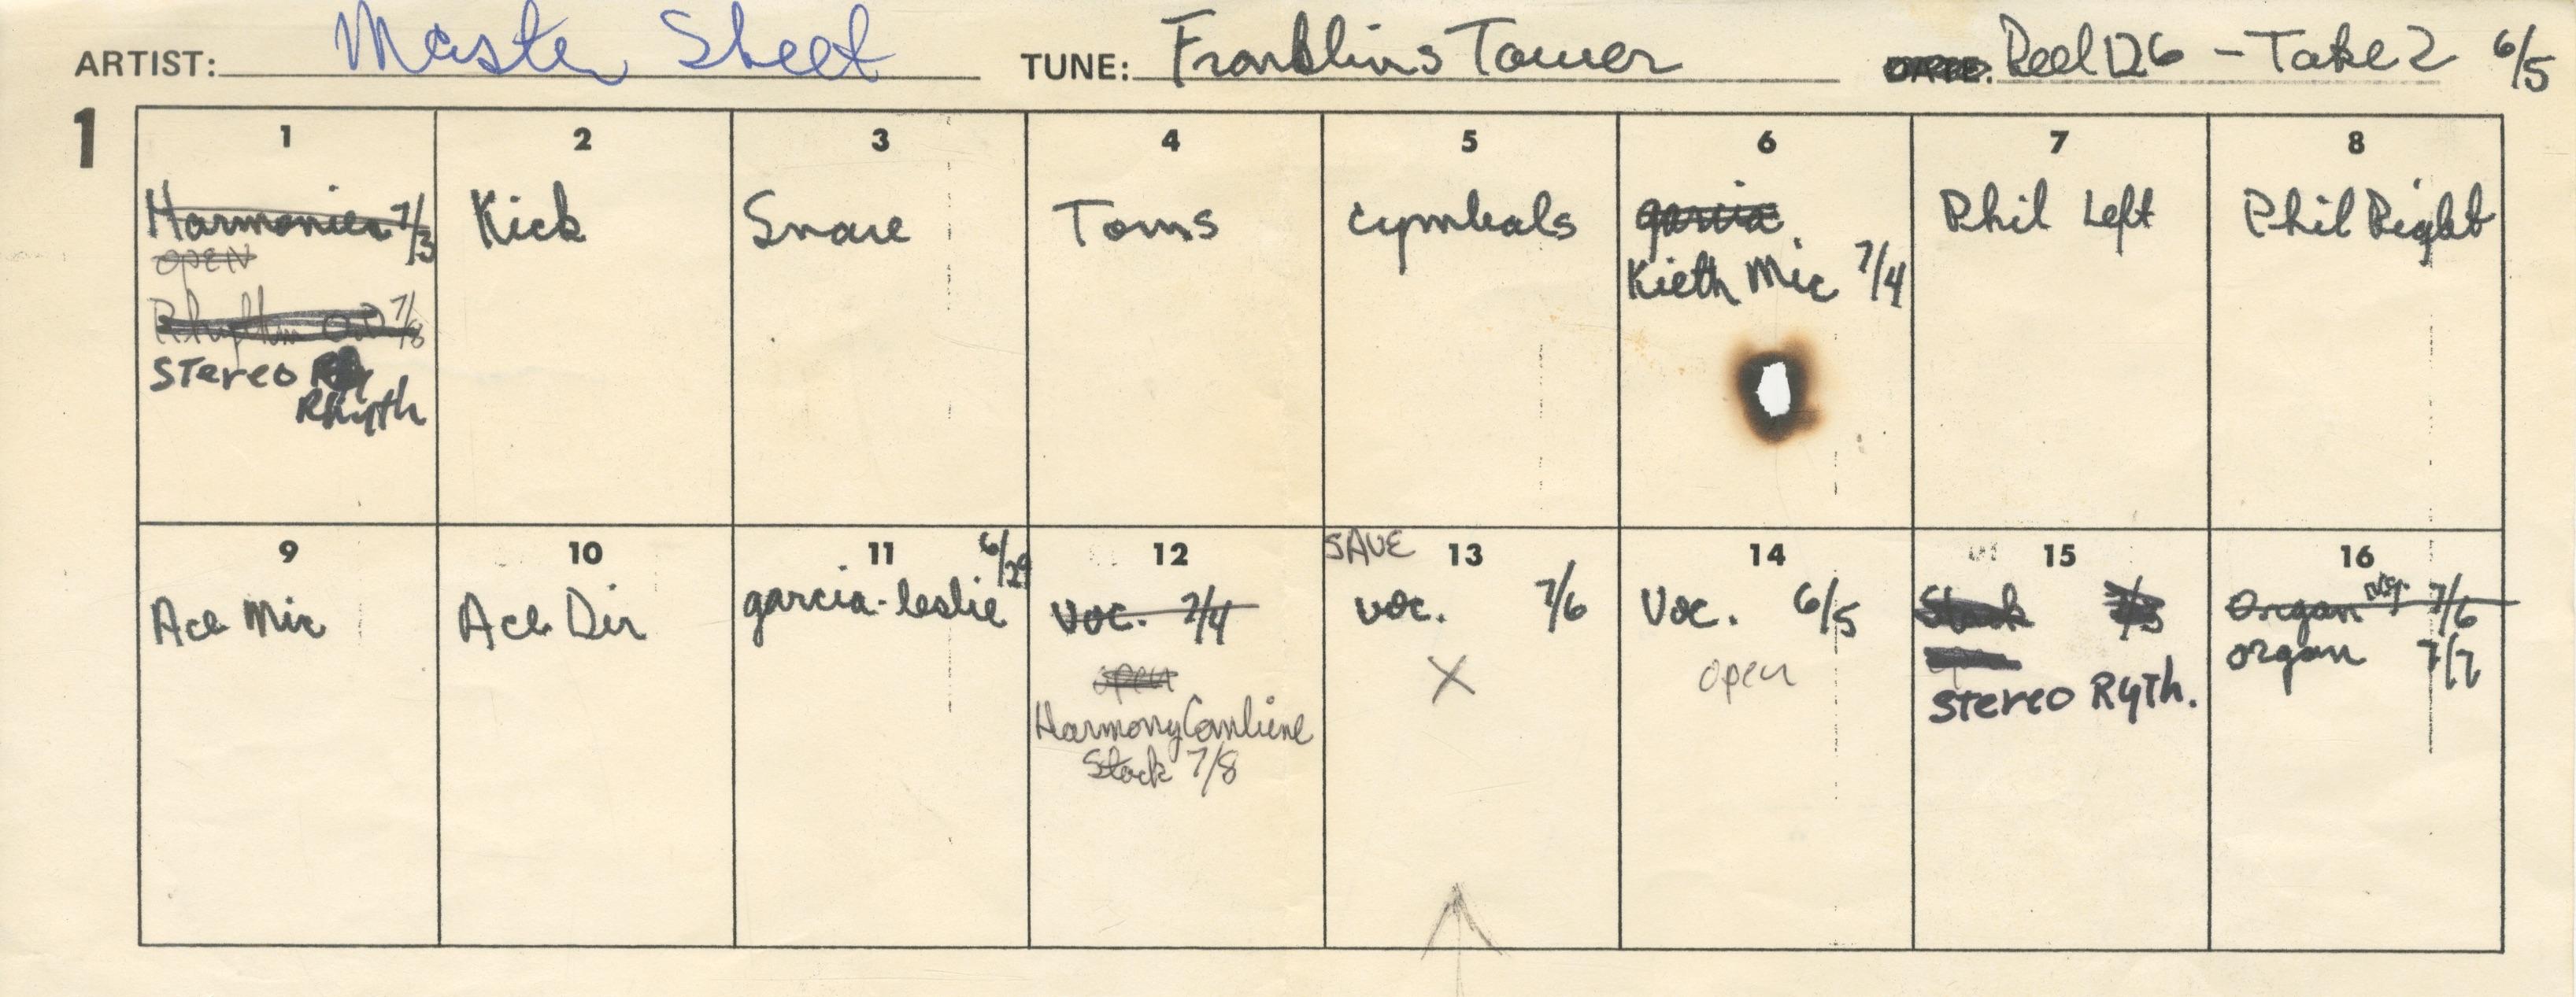 ARTIST: Master Sheet TUNE: Franklins Tower DATE: Reel 126 - Take 2 6/5
1
1 2 3 4 5 6 7 8
Harmonies 7/3
OPEN
Rhythm OD 7/8
Stereo
Rhyth
Kick
Snare
Toms
Cymbals
garcia
Kieth Mic 7/4
Phil Left
Phil Right
9 10 11 12 13 14 15 16
Ace Mic
Ace Dir
6/29
garcia-leslie
voc. 7/4
open
Harmony Combine
Stack 7/8
SAVE
voc. 7/6
X
Voc. 6/5
open
Stack 7/3
Stereo Ryth.
Organ 7/6
organ 7/7